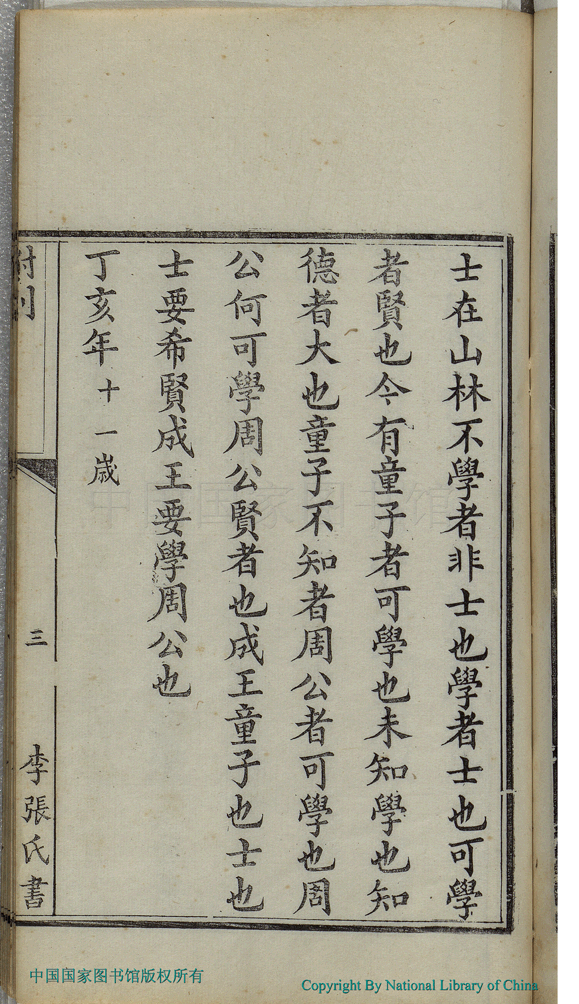 士在山林不學者非士也學者士也可學
者賢也今有童子者可學也未知學也知
德者大也童子不知者周公者可學也周
公何可學周公賢者也成王童子也士也
士要希賢成王要學周公也
丁亥年十一歲
附刊
三
李張氏書
中国国家图书馆
中国国家图书馆版权所有
Copyright By National Library of China